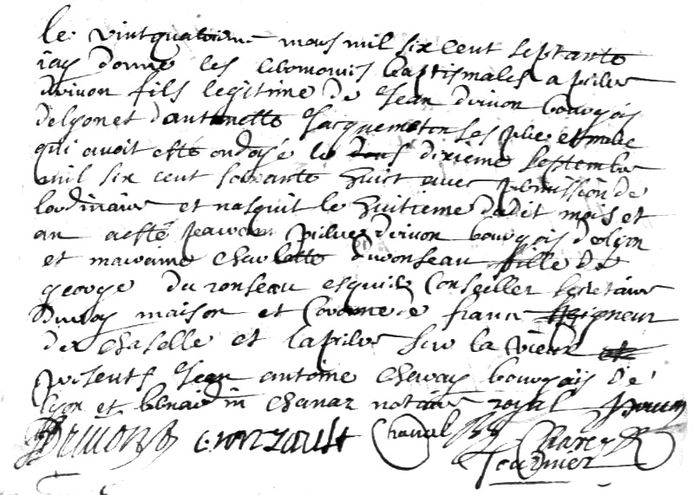 le vintquatrieme mars mil six cent septante
iay donne les ceremonies baptismales a pierre
drivon fils legitime de Jean drivon bourgois
delyon et dantoinette Jacquemeton ses pere et mere
qui avoit esté ondoyé le dixieme septembre
mil six cent soixante huict avec permission de
lordinaire et nasquit le huitieme dudit mois et
an a esté parrein pierre drivon bourgois delyon
et marraine Charlotte duronseau fille de
george du ronseau esquier Conseiller secretaire
du roy maison et Couronne de france seigneur
de Chaselle et la pierre sur la
presents Jean antoine Chavay bourgois de
lyon et benard in Chanaz notaire royal
Drivon